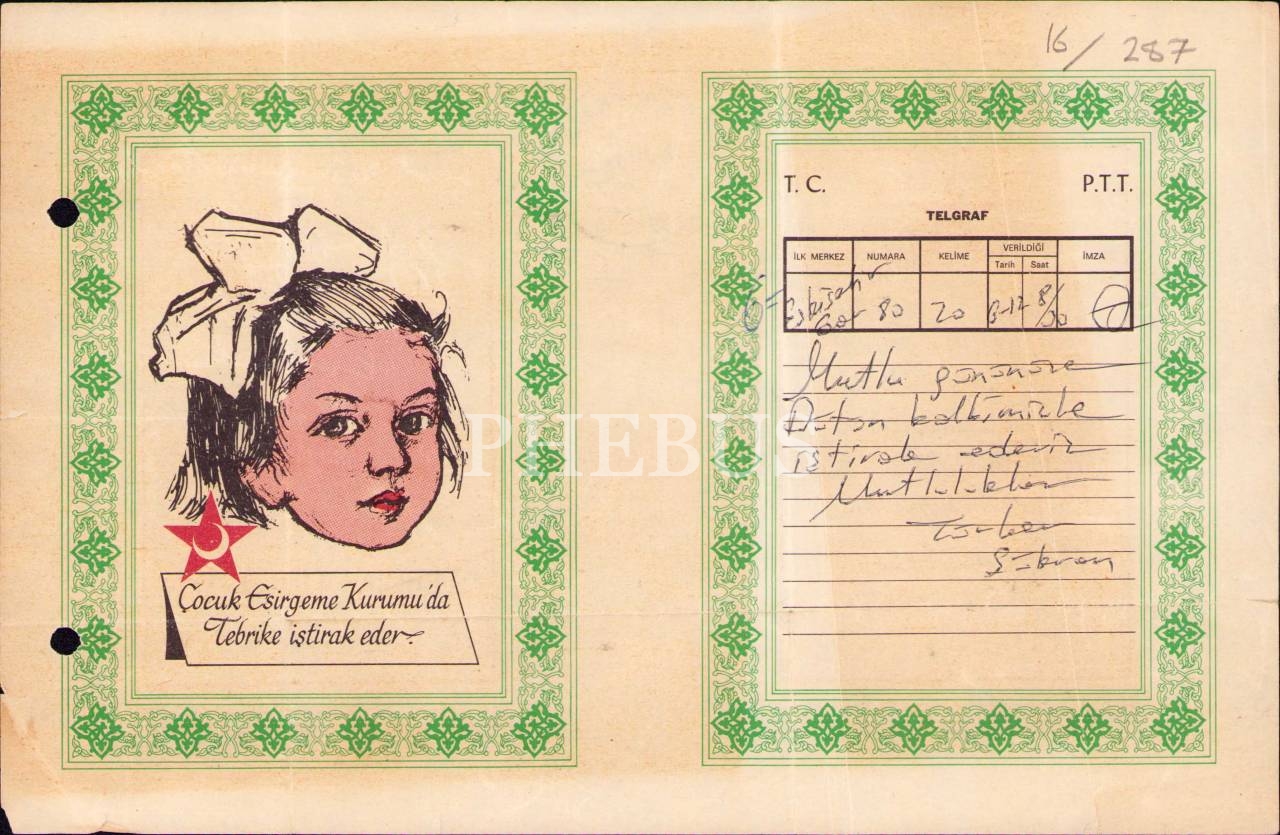 16 / 287
Çocuk Esirgeme Kurumu'da
Tebrike iştirak eder.
T. C. P.T.T.
TELGRAF
İLK MERKEZ NUMARA KELİME VERİLDİĞİ İMZA
Tarih Saat
Eskişehir 80 20
Mutlu gününüze
Bütün kalbimizle
iştirak ederiz
Mutluluklar
Şükran
PHEBUS